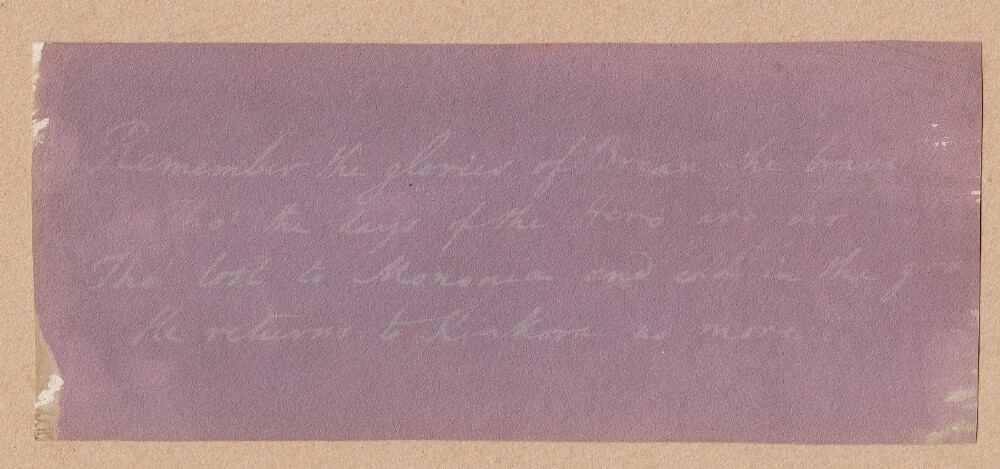 Remember the glories of Brian the brave
Tho' the days of the Hero are oer
Tho' lost to Mononia and cold in the grave
He returns to Kinkora no more.